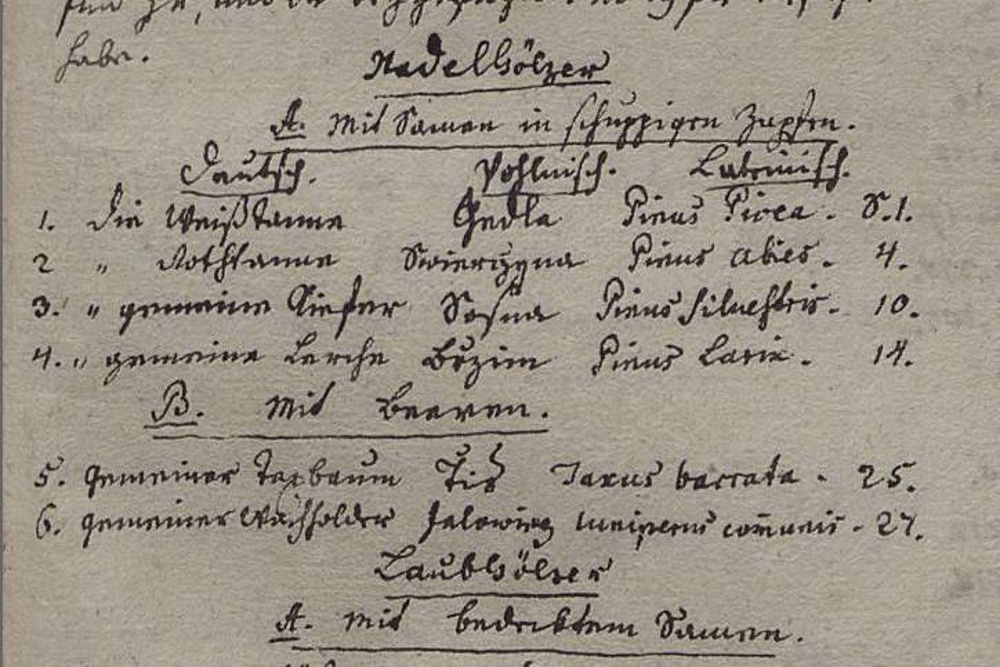 habe.
Nadelhölzer
A. Mit Samen in schuppigen Zapfen.
Deutsch. Pohlnisch. Lateinisch.
1. Die Weißtanne Gedla Pinus Picea. S. 1.
2 " Rothtanne Swierzyna Pinus abies. 4.
3. " gemeine Kiefer Sosna Pinus silvestris. 10.
4. " gemeine Lerche Brzim Pinus Larix. 14.
B. Mit Beeren.
5. Gemeiner Taxbaum Tis Taxus baccata. 25.
6. gemeiner Wachholder Jalowiez Iuniperus com̄unis. 27.
Laubhölzer
A. Mit bedecktem Samen.